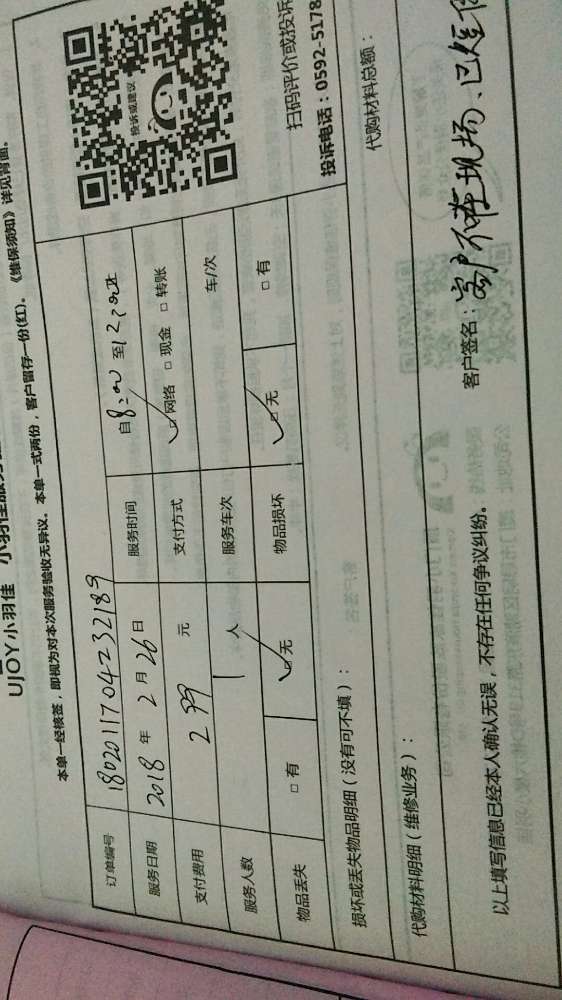 UJOY小羽佳 小羽佳服务
本单一经核签，即视为对本次服务验收无异议。本单一式两份，客户留存一份(红)。《维保须知》详见背面。
订单编号 1802011704232189
服务日期 2018 年 2 月 26 日 服务时间 自 8:00 至 12:00止
支付费用 299 元 支付方式 □网络 □现金 □转账
服务人数 1 人 服务车次 车/次
物品丢失 □有 □无 物品损坏 □无 □有
投诉或建议
扫码评价或投诉
投诉电话：0592-5178
损坏或丢失物品明细（没有可不填）：
代购材料明细（维修业务）： 代购材料总额：
以上填写信息已经本人确认无误，不存在任何争议纠纷。 客户签名：客户不在现场、已短